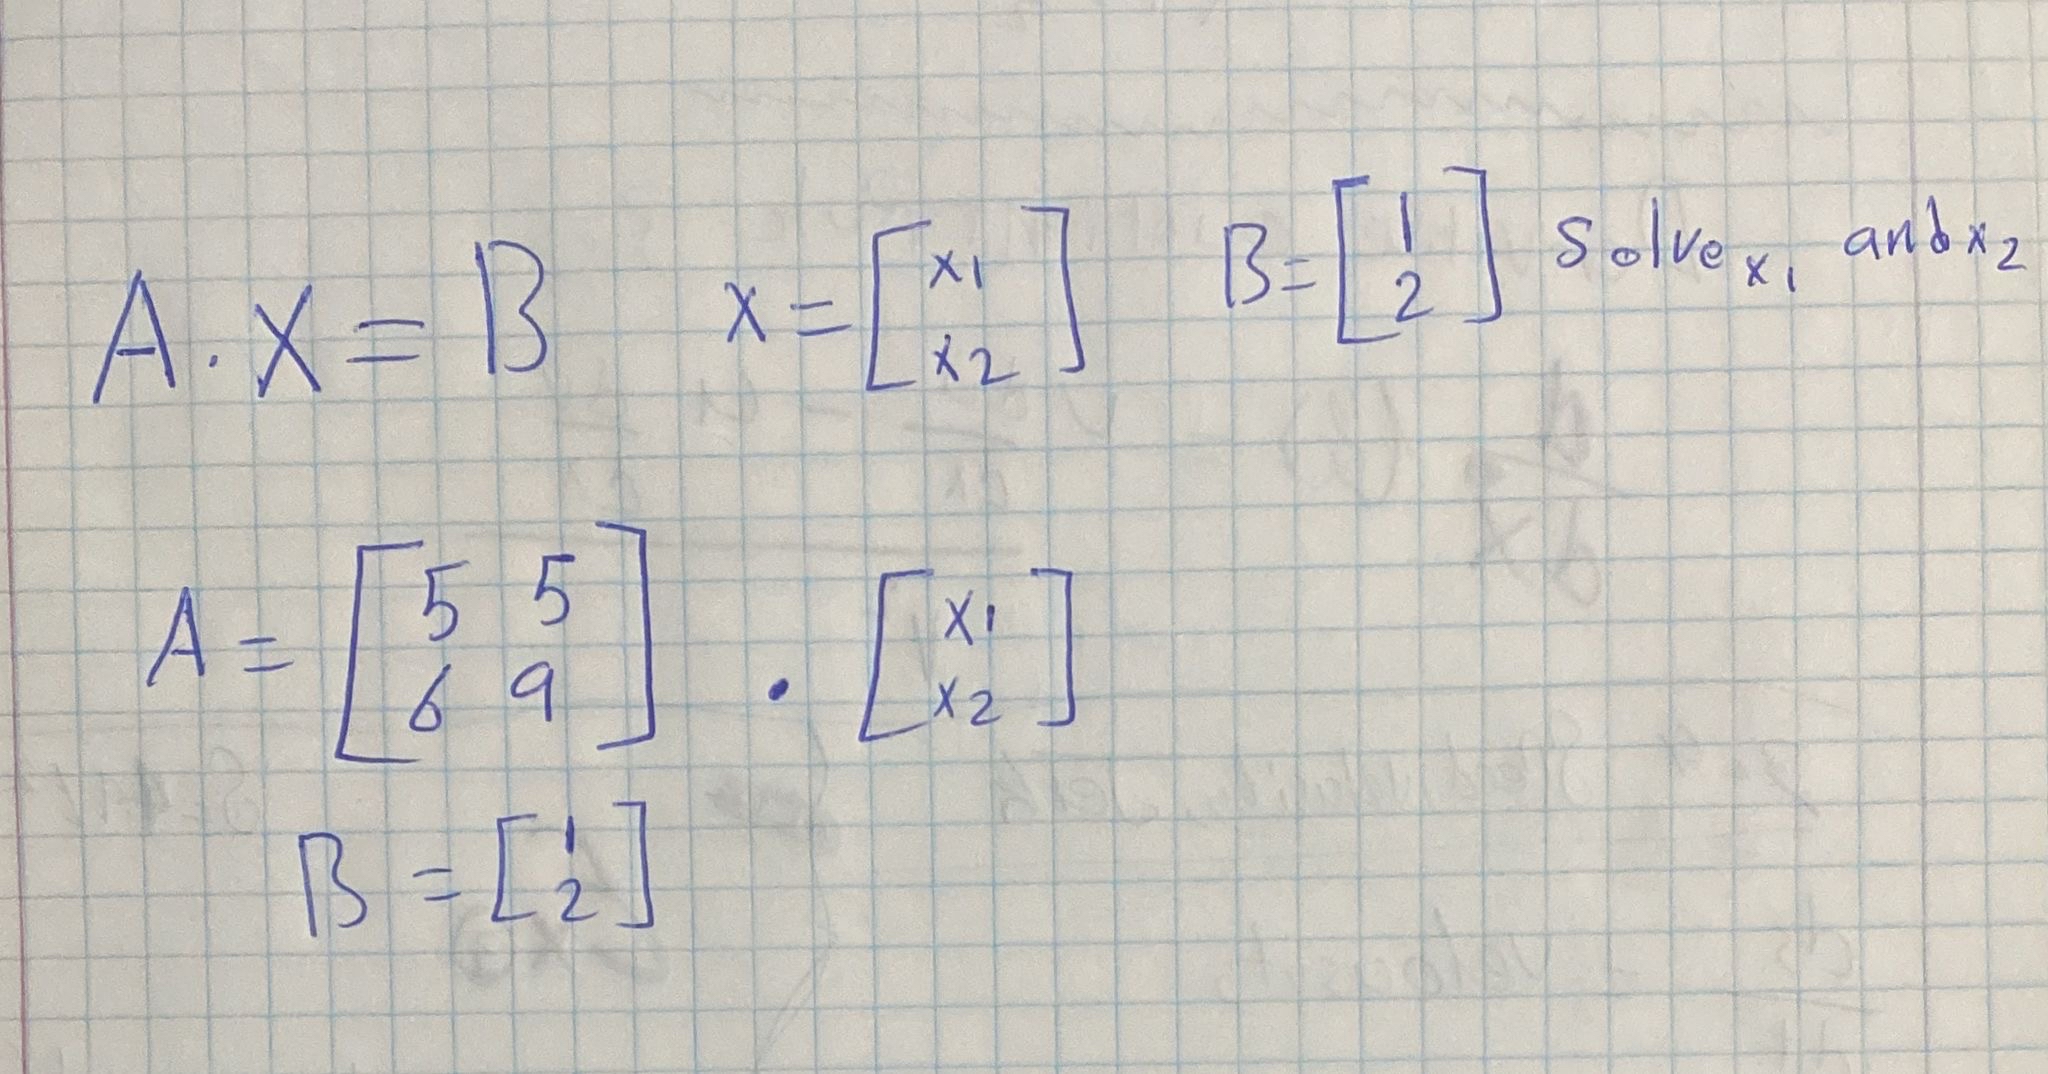 A · X = B x = [ x1 x2 ] B = [ 1 2 ] Solve x1 and x2
A = [ 5 5 6 9 ] · [ x1 x2 ]
B = [ 1 2 ]